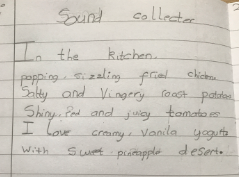 Sound collector
In the kitchen.
popping. sizzling fried chicken
Salty and Vingery roast potatoes
Shiny, Red and juicy tomatoes
I love creamy, vanila yogurts
with sweet pineapple desert.